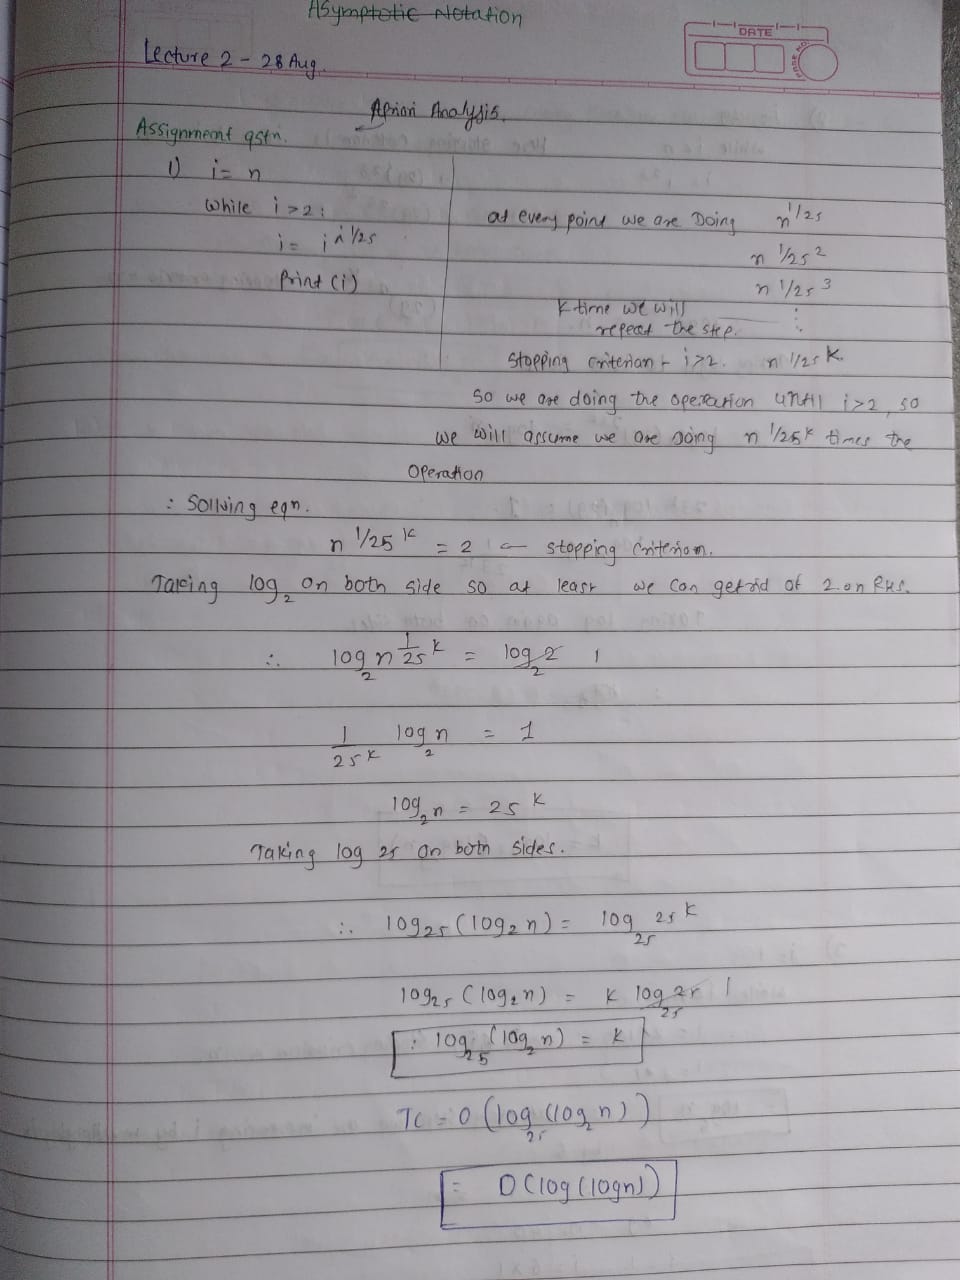 Asymptotic Notation
DATE
Lecture 2 - 28 Aug.
Apriori Analysis.
Assignment qstn.
1) i = n
while i > 2 :
i = i^1/25
Print (i)
at every point we are Doing n^1/25
n^1/25^2
n^1/25^3
⋮
k time we will
repeat the step.
Stopping criterian + i>2. n^1/25^k.
So we are doing the operation until i>2, so
we will assume we are doing n^1/25^k times the
operation
: Solving eqn.
n^1/25^k = 2 ← stopping criteriom.
Taking log₂ on both side so at least we can get rid of 2 on RHS.
∴ log₂ n^(1/25^k) = log₂ 2 1
1/25^k log₂ n = 1
log₂ n = 25^k
Taking log 25 on both sides.
∴ log₂₅ (log₂ n) = log₂₅ 25^k
log₂₅ (log₂ n) = k log₂₅ 25 1
: log₂₅ (log₂ n) = k
TC = O (log₂₅ (log₂ n))
= O (log (logn))